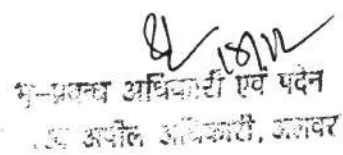 भू-प्रबन्ध अधिकारी एवं पदेन
अपील अधिकारी, अलवर